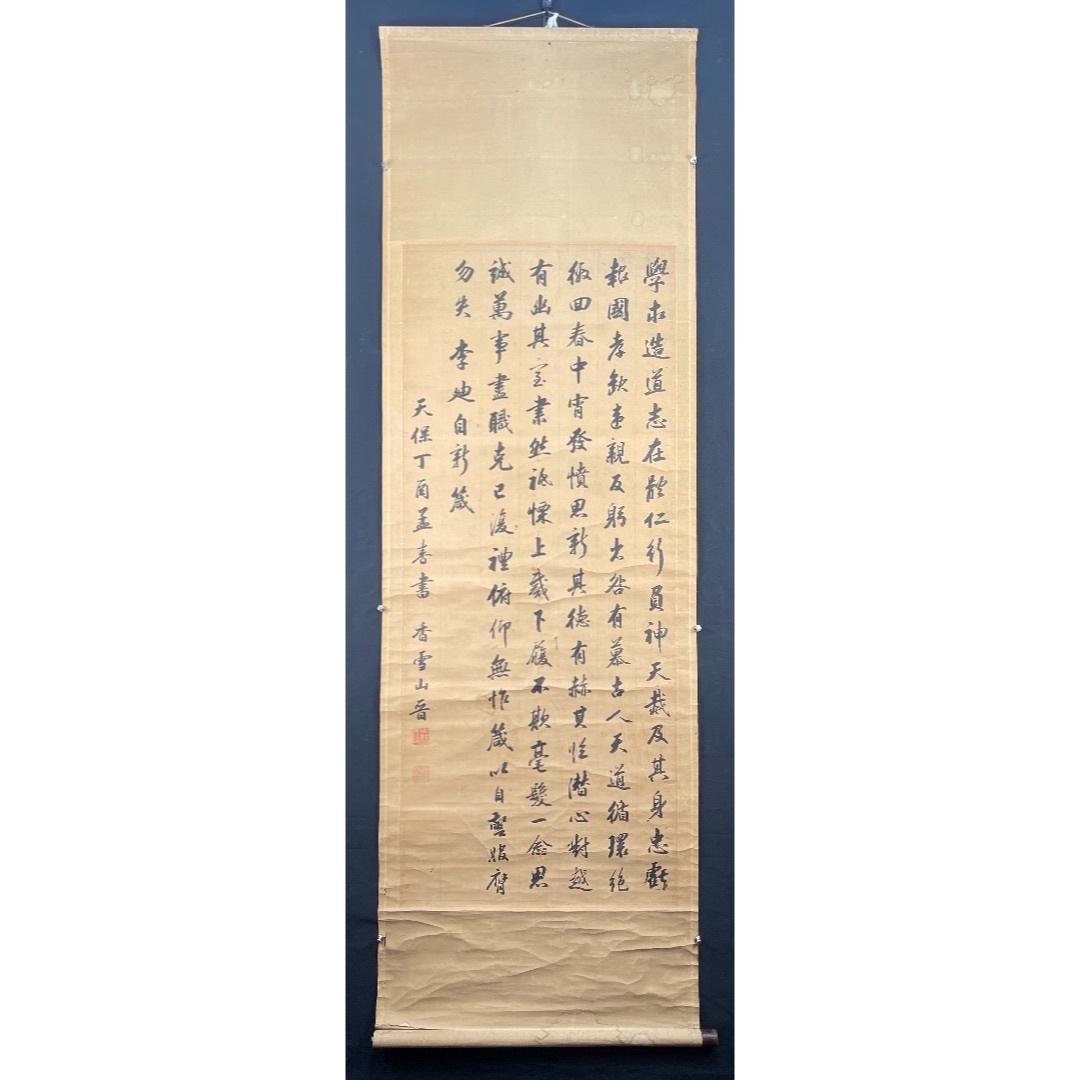 學求造道志在體仁行員神天烖及其身忠虧
報國孝歉事親反躬省咎有慕古人天道循環絶
極回春中宵發憤思新其德有赫其臨潛心對越
有幽其室肅然祗慄上戴下履不欺毫髮一念思
誠萬事盡職克己復禮俯仰無怍箴以自警服膺
勿失 李迪自新箴
天保丁酉孟春書 香雪山晉